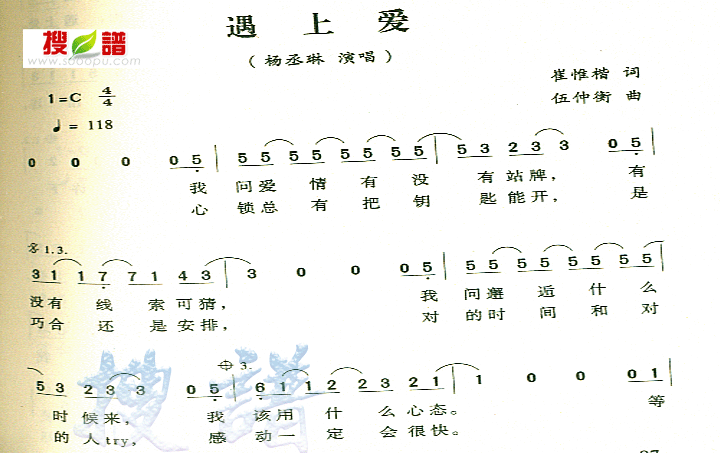 遇上爱
搜谱
www.sooopu.com
(杨丞琳 演唱)
崔惟楷 词
伍仲衡 曲
1=C 4/4
♩= 118
0 0 0 0 5 | 5 5 5 5 5 5 5 5 | 5 3 2 3 3 0 5 |
我 问爱 情 有 没 有 站牌, 有
心 锁总 有 把 钥 匙能开, 是
1.3.
3 1 1 7 7 1 4 3 | 3 0 0 0 5 | 5 5 5 5 5 5 5 5 |
没有 线 索可猜, 我 问邂 逅 什 么
巧合 还 是安排, 对 的时 间 和 对
3.
5 3 2 3 3 0 5 | 6 1 1 2 2 3 2 1 | 1 0 0 0 1 |
时 候来, 我 该用 什 么心态。 等
的 人try, 感 动一 定 会很快。
搜谱